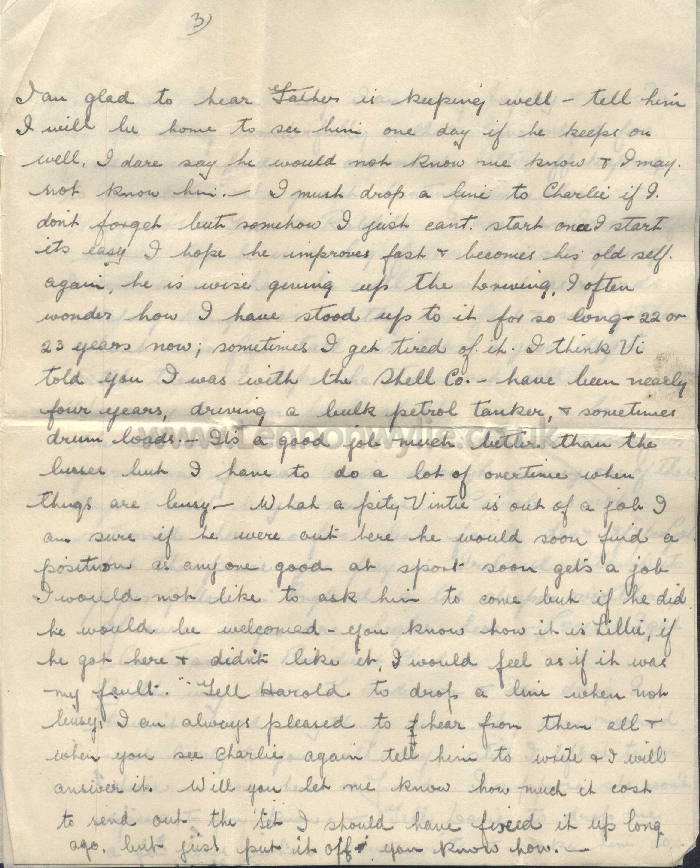 3)
I am glad to hear Father is keeping well - tell him
I will be home to see him one day if he keeps on
well. I dare say he would not know me know & I may
not know him. - I must drop a line to Charlie if I
don't forget but somehow I just cant. start once I start
its easy I hope he improves fast & becomes his old self.
again, he is wise giving up the driving, I often
wonder how I have stood up to it for so long - 22 or
23 years now; sometimes I get tired of it. I think Vi
told you I was with the Shell Co. - have been nearly
four years, driving a bulk petrol tanker, & sometimes
drum loads. - It's a good job much better than the
buses but I have to do a lot of overtime when
things are busy - What a pity Vintie is out of a job I
am sure if he were out here he would soon find a
position as anyone good at sport soon gets a job
I would not like to ask him to come but if he did
he would be welcomed - you know how it is Lillie, if
he got here & didn't like it, I would feel as if it was
my fault. Tell Harold to drop a line when not
busy, I am always pleased to hear from them all &
when you see Charlie again tell him to write & I will
answer it. Will you let me know how much it cost
to send out the set I should have fixed it up long
ago, but just put it off you know how. -
www.Lennonwylie.co.uk